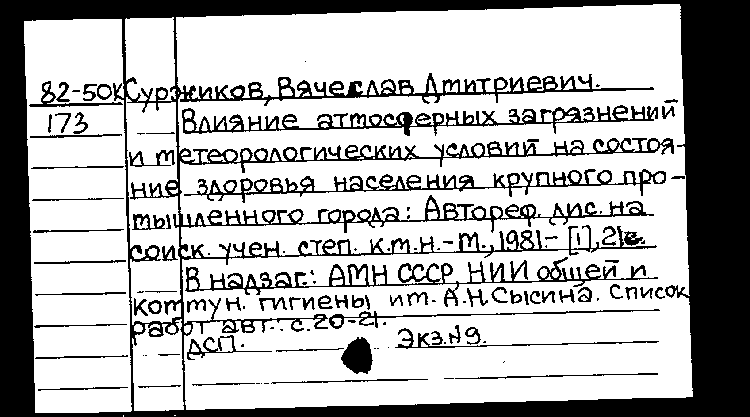 82-50к Суржиков, Вячеслав Дмитриевич.
173 Влияние атмосферных загрязнений
и метеорологических условий на состоя-
ние здоровья населения крупного про-
мышленного города: Автореф. дис. на
соиск. учен. степ. к.м.н.-М., 1981.- [1], 21с.
В надзаг.: АМН СССР, НИИ общей и
коммун. гигиены им. А.Н.Сысина. Список
работ авт.: с.20-21.
ДСП. Экз.№9.